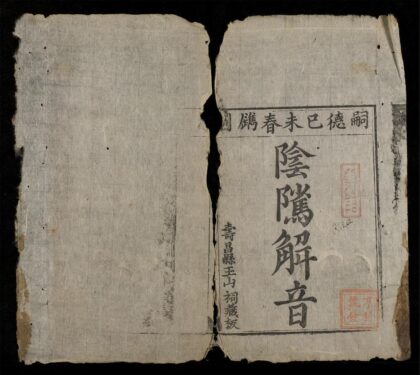 嗣德己未春鐫
陰隲解音
壽昌縣玉山祠藏板